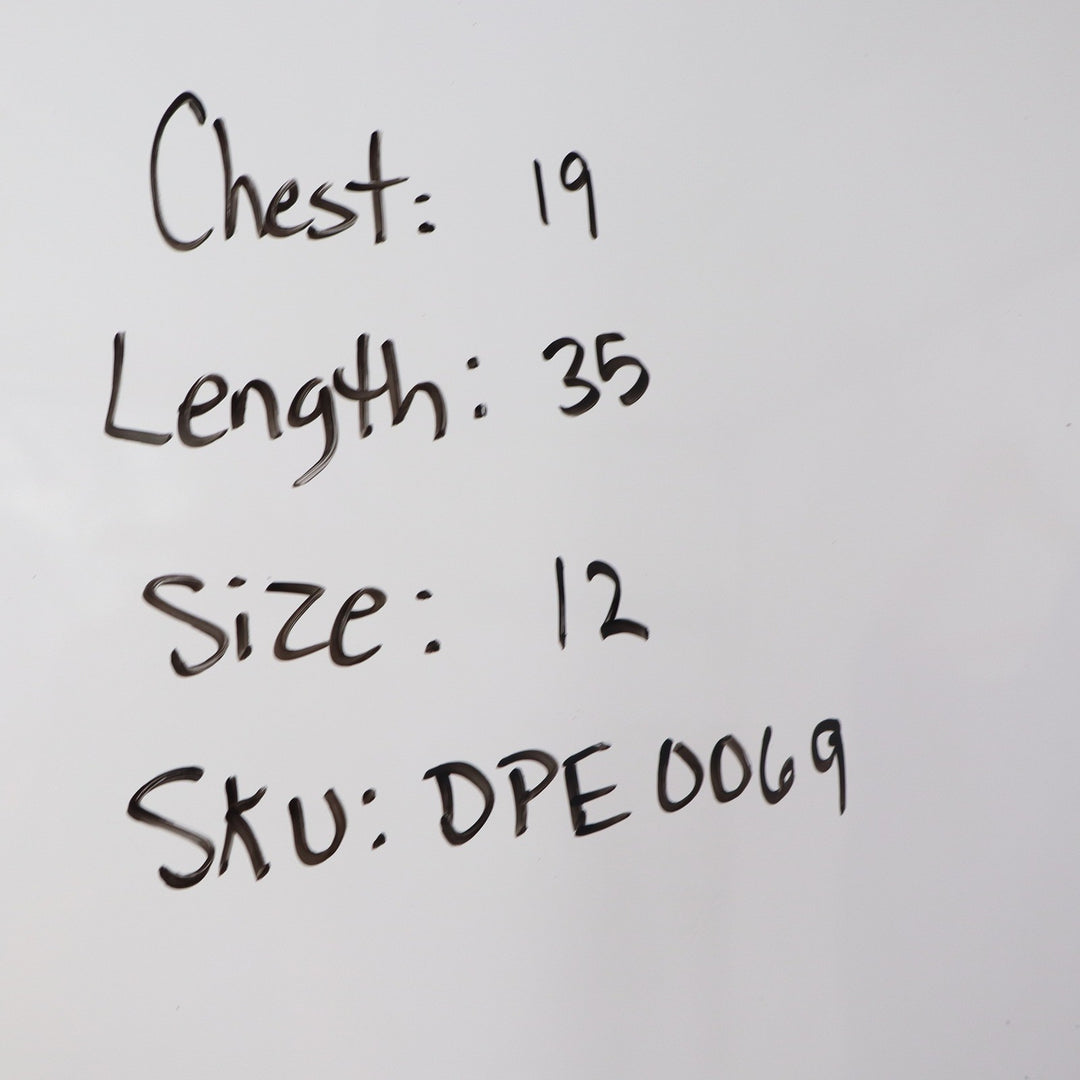 Chest: 19
Length: 35
Size: 12
SKU: DPE 0069